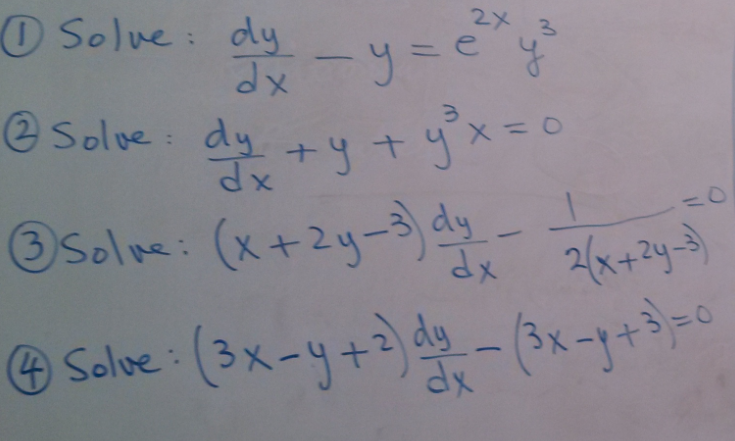 ① Solve: dy/dx - y = e^2x y^3
② Solve: dy/dx + y + y^3 x = 0
③ Solve: (x+2y-3) dy/dx - 1/2(x+2y-3) = 0
④ Solve: (3x-y+2) dy/dx - (3x-y+3) = 0